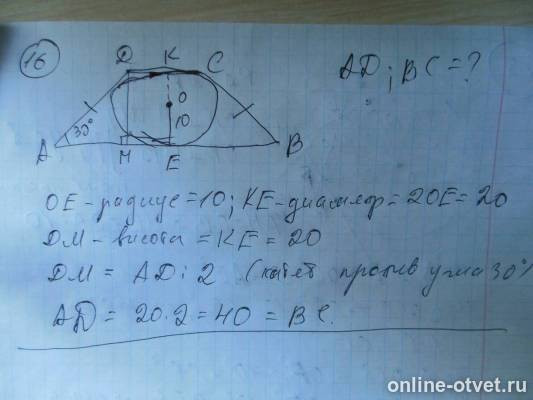 16
D K C
AD; BC = ?
O
10
30°
A M E B
OE - радиус = 10; KE - диаметр = 2OE = 20
DM - высота = KE = 20
DM = AD : 2 (катет против угла 30°)
AD = 20 · 2 = 40 = BC.
online-otvet.ru